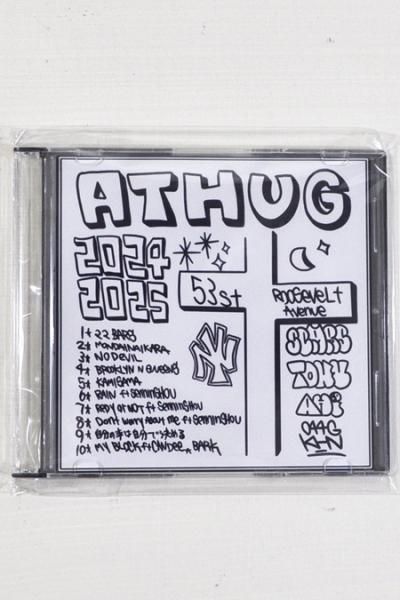 ATHUG
2024
2025
53st
Roosevelt
Avenue
NY
1★ 22 BARS
2★ MONDAINAIKARA
3★ NO DEVIL
4★ BROOKLYN N QUEENS
5★ KAMISAMA
6★ RAIN ft SENNINSHOU
7★ REDY OR NOT ft SENNINSHOU
8★ DON'T WORRY ABOUT ME ft SENNINSHOU
9★ 自分の事は自分で決める
10★ MY BLOCK ft CANDEE, BARK
TONY